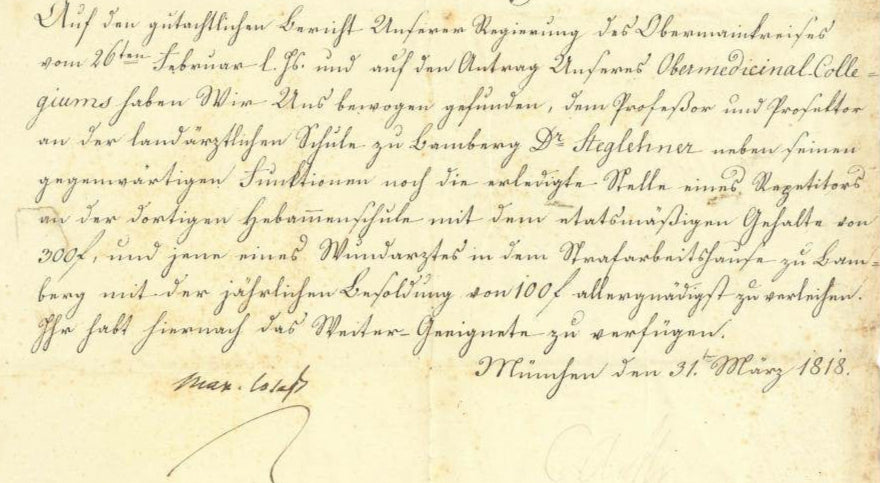 Auf den gutachtlichen Bericht Unserer Regierung des Obermainkreises
vom 26ten Februar l. Js. und auf den Antrag Unseres Obermedicinal-Colle=
giums haben Wir Uns bewogen gefunden, dem Profeßor und Prosektor
an der landärztlichen Schule zu Bamberg Dr. Steglehner neben seinen
gegenwärtigen Funktionen noch die erledigte Stelle eines Repetitors
an der dortigen Hebam̅enschule mit dem etatsmäßigen Gehalte von
300f, und jene eines Wundarztes in dem Strafarbeitshause zu Bam=
berg mit der jährlichen Besoldung von 100f allergnädigst zu verleihen.
Ihr habt hiernach das Weiter-Geeignete zu verfügen.
München den 31.t März 1818.
Max. Joseph